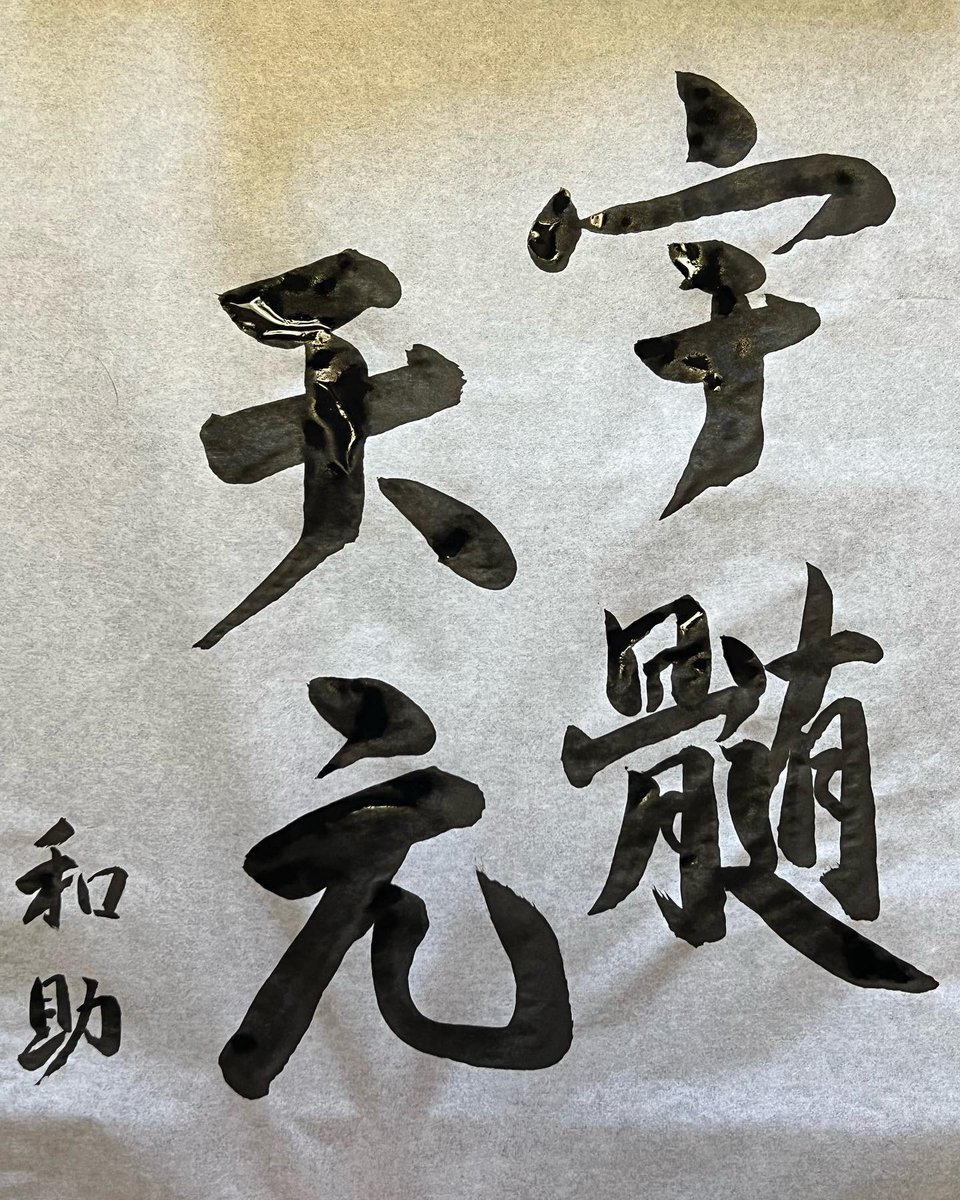 宇髄
天元
和助